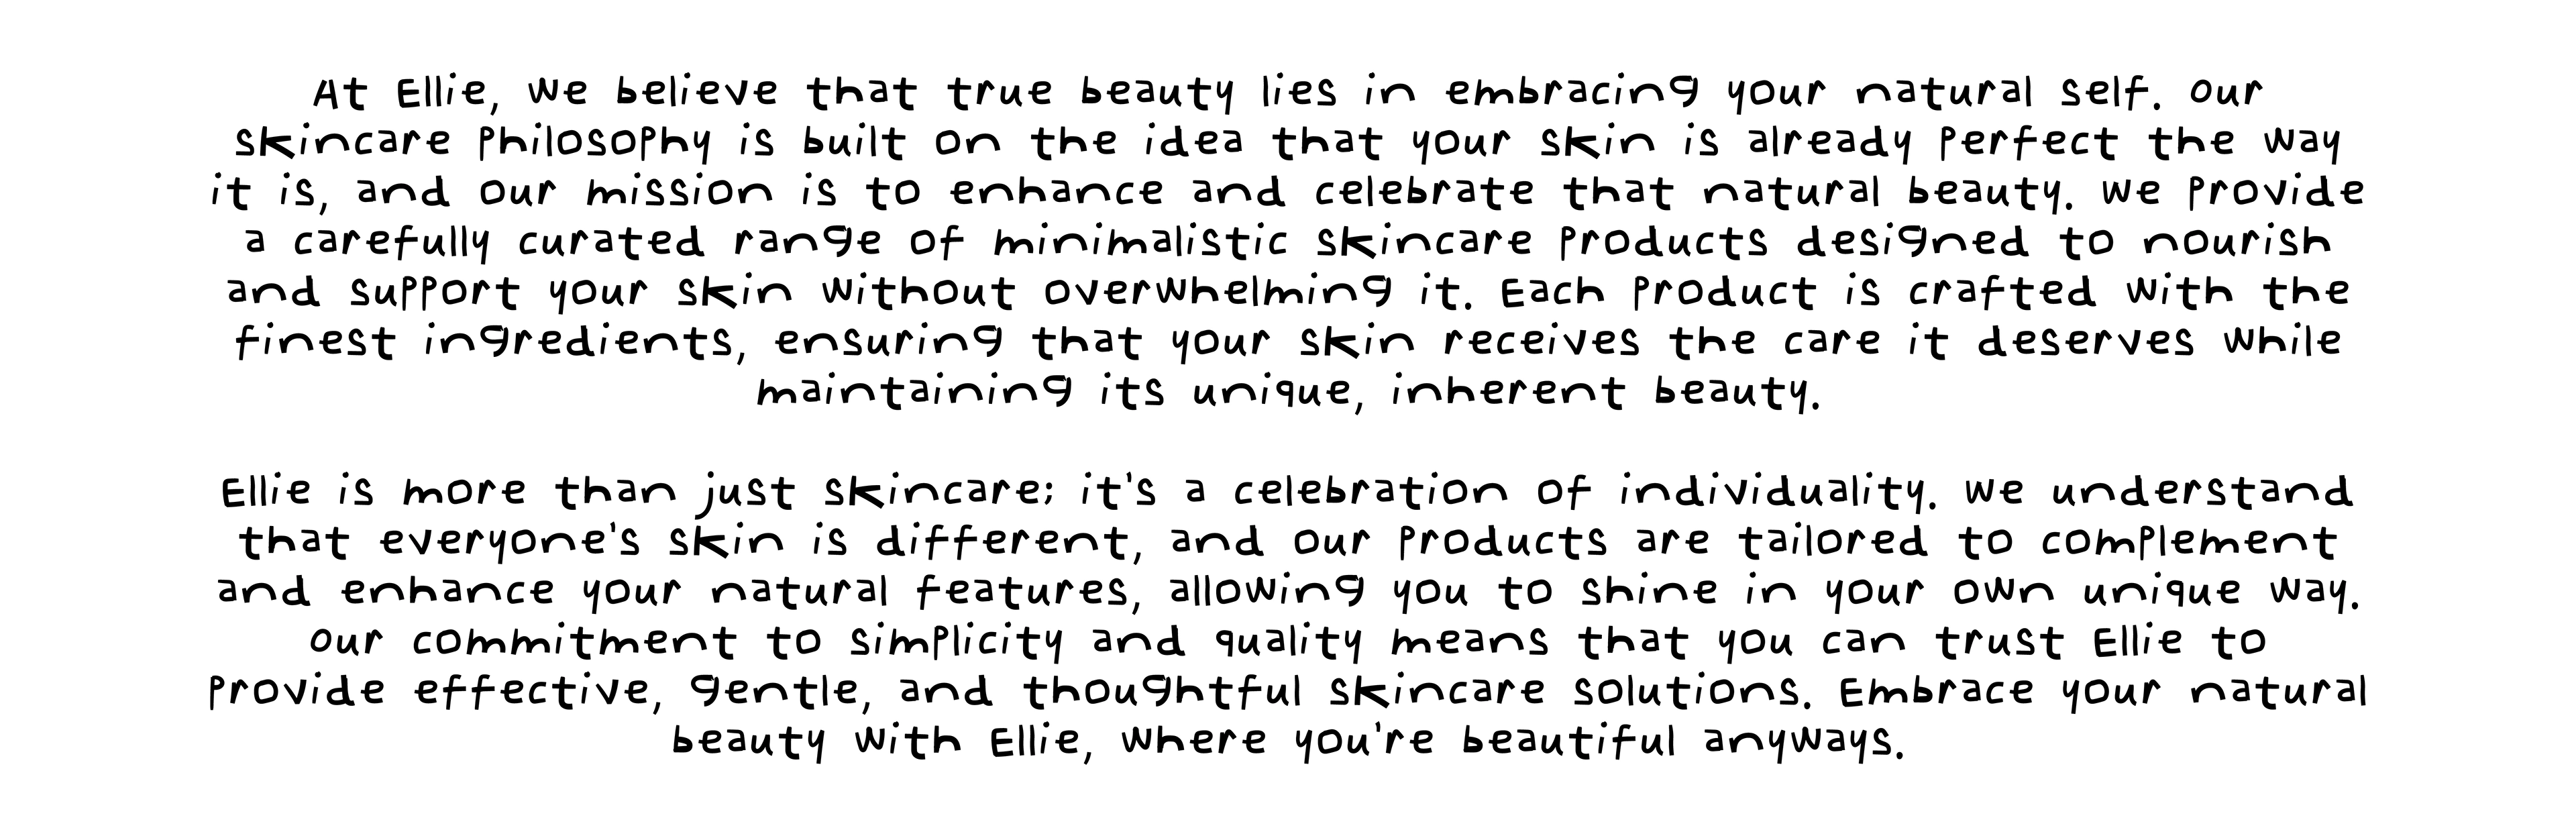 At Ellie, we believe that true beauty lies in embracing your natural self. Our
skincare philosophy is built on the idea that your skin is already perfect the way
it is, and our mission is to enhance and celebrate that natural beauty. We provide
a carefully curated range of minimalistic skincare products designed to nourish
and support your skin without overwhelming it. Each product is crafted with the
finest ingredients, ensuring that your skin receives the care it deserves while
maintaining its unique, inherent beauty.

Ellie is more than just skincare; it's a celebration of individuality. We understand
that everyone's skin is different, and our products are tailored to complement
and enhance your natural features, allowing you to shine in your own unique way.
Our commitment to simplicity and quality means that you can trust Ellie to
provide effective, gentle, and thoughtful skincare solutions. Embrace your natural
beauty with Ellie, where you're beautiful anyways.